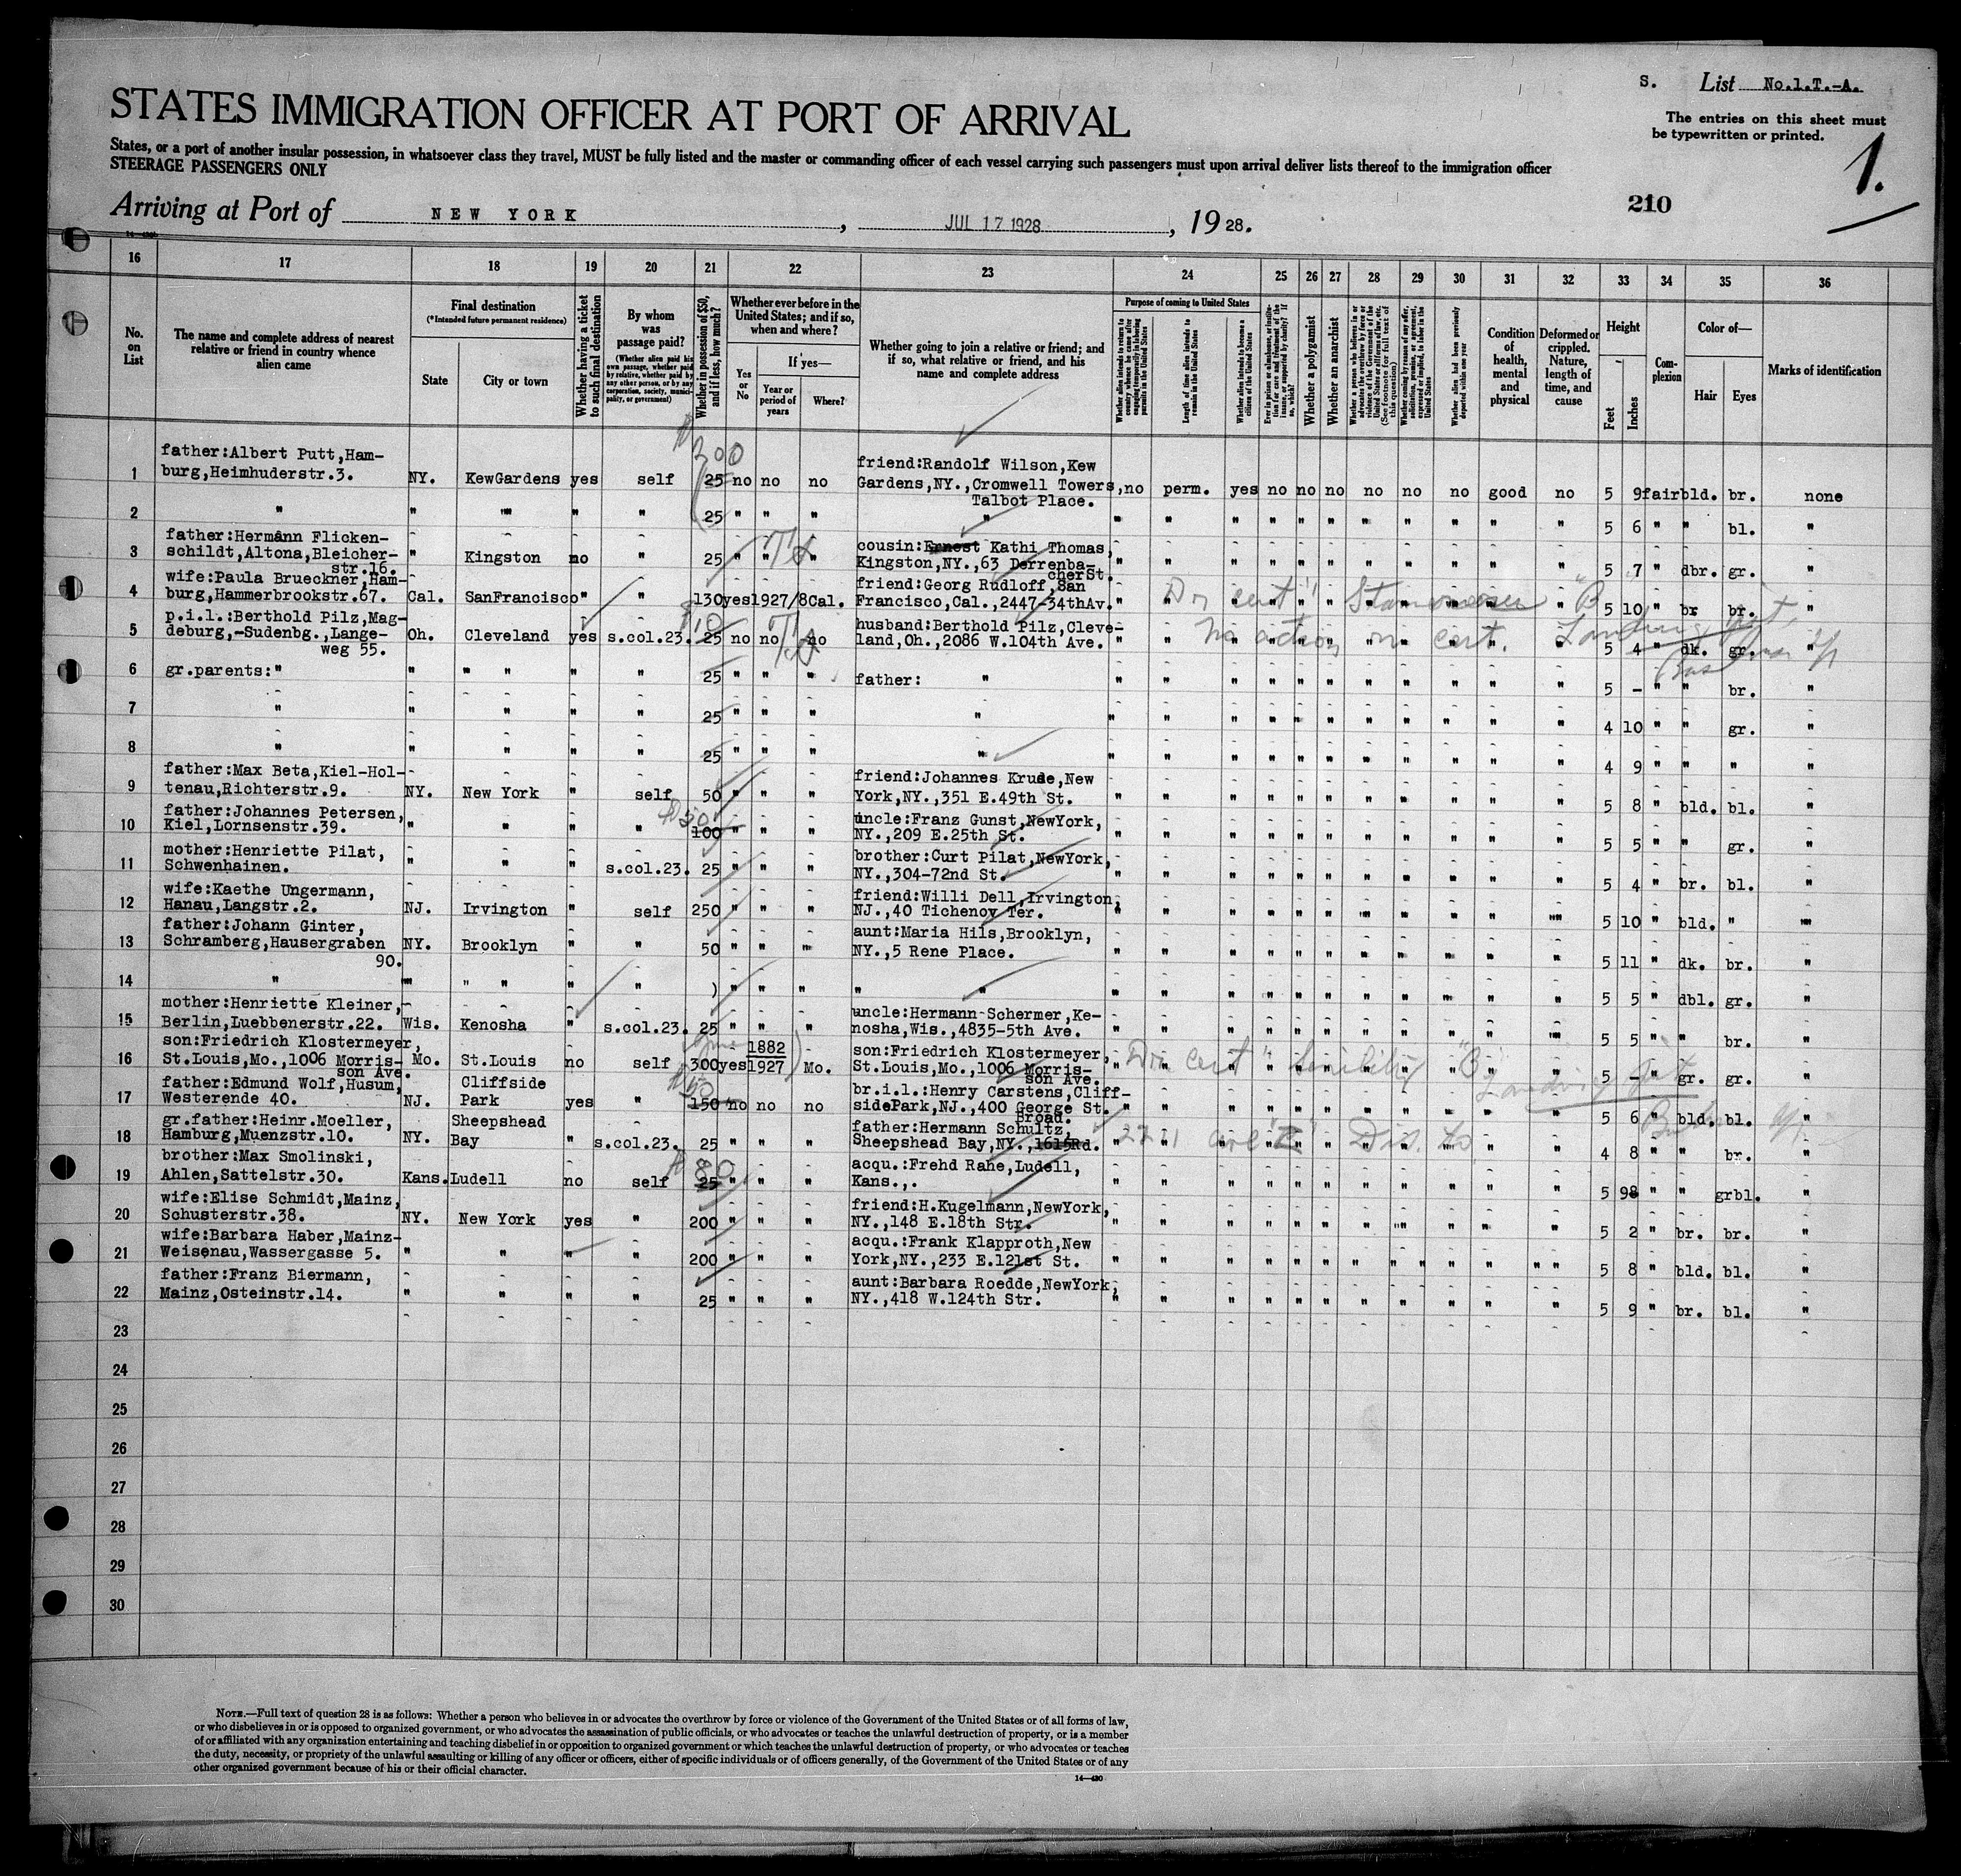 S. List No.1.T.-A.
STATES IMMIGRATION OFFICER AT PORT OF ARRIVAL
The entries on this sheet must
be typewritten or printed.
1.
States, or a port of another insular possession, in whatsoever class they travel, MUST be fully listed and the master or commanding officer of each vessel carrying such passengers must upon arrival deliver lists thereof to the immigration officer
STEERAGE PASSENGERS ONLY
210
Arriving at Port of NEW YORK, JUL 17 1928, 1928.
16 17 18 19 20 21 22 23 24 25 26 27 28 29 30 31 32 33 34 35 36
No. on List
The name and complete address of nearest relative or friend in country whence alien came
Final destination
(*Intended future permanent residence)
State
City or town
Whether having a ticket to such final destination
By whom was passage paid?
(Whether alien paid his own passage, whether paid by relative, whether paid by any other person, or by any corporation, society, municipality, or government)
Whether in possession of $50, and if less, how much?
Whether ever before in the United States; and if so, when and where?
Yes or No
If yes—
Year or period of years
Where?
Whether going to join a relative or friend; and if so, what relative or friend, and his name and complete address
Purpose of coming to United States
Length of time alien intends to remain in the United States
Whether alien intends to become a citizen of the United States
Whether a polygamist
Whether an anarchist
Condition of health, mental and physical
Deformed or crippled. Nature, length of time, and cause
Height
Feet
Inches
Complexion
Color of—
Hair
Eyes
Marks of identification
1 father:Albert Putt,Ham-
burg,Heimhuderstr.3. NY. KewGardens yes self 300 25 no no no friend:Randolf Wilson,Kew
Gardens,NY.,Cromwell Towers,
Talbot Place. no perm. yes no no no no no no good no 5 9 fair bld. br. none
2 " " " " " 25 " " " " " " " " " " " " " " " 5 6 " " bl. "
3 father:Hermann Flicken-
schildt,Altona,Bleicher-
str.16. " Kingston no " 25 " " " cousin:Ernest Kathi Thomas,
Kingston,NY.,63 Derrenba-
cherSt. " " " " " " " " " " " 5 7 " dbr. gr. "
4 wife:Paula Brueckner,Ham-
burg,Hammerbrookstr.67. Cal. SanFrancisco " " 130 yes 1927/8 Cal. friend:Georg Rudloff,San
Francisco,Cal.,2447-34thAv. " 5 10 " br br. "
5 p.i.l.:Berthold Pilz,Mag-
deburg,-Sudenbg.,Lange-
weg 55. Oh. Cleveland yes s.col.23. 25 no no no husband:Berthold Pilz,Cleve-
land,Oh.,2086 W.104th Ave. " " No action on cert. 5 4 " dk. gr. "
6 gr.parents:" " " " " " 25 " " " father: " " " " " " " " " " " " 5 - " " br. "
7 " " " " " 25 " " " " " " " " " " " " " " " 4 10 " " gr. "
8 " " " " " 25 " " " " " " " " " " " " " " " 4 9 " " " "
9 father:Max Beta,Kiel-Hol-
tenau,Richterstr.9. NY. New York " self 50 " " " friend:Johannes Krude,New
York,NY.,351 E.49th St. " " " " " " " " " " " 5 8 " bld. bl. "
10 father:Johannes Petersen,
Kiel,Lornsenstr.39. " " " " 100 " " " uncle:Franz Gunst,NewYork,
NY.,209 E.25th St. " " " " " " " " " " " 5 5 " " gr. "
11 mother:Henriette Pilat,
Schwenhainen. " " " s.col.23. 25 " " " brother:Curt Pilat,NewYork,
NY.,304-72nd St. " " " " " " " " " " " 5 4 " br. bl. "
12 wife:Kaethe Ungermann,
Hanau,Langstr.2. NJ. Irvington " self 250 " " " friend:Willi Dell,Irvington,
NJ.,40 Tichenov Ter. " " " " " " " " " " " 5 10 " bld. " "
13 father:Johann Ginter,
Schramberg,Hausergraben
90. NY. Brooklyn " " 50 " " " aunt:Maria Hils,Brooklyn,
NY.,5 Rene Place. " " " " " " " " " " " 5 11 " dk. br. "
14 " " " " " " ) " " " " " " " " " " " " " " " " " 5 5 " dbl. gr. "
15 mother:Henriette Kleiner,
Berlin,Luebbenerstr.22. Wis. Kenosha " s.col.23. 25 " " " uncle:Hermann Schermer,Ke-
nosha,Wis.,4835-5th Ave. " " " " " " " " " " " 5 5 " " br. "
16 son:Friedrich Klostermeyer,
St.Louis,Mo.,1006 Morris-
son Ave. Mo. St.Louis no self 300 yes 1882
1927 Mo. son:Friedrich Klostermeyer,
St.Louis,Mo.,1006 Morris-
son Ave. " 5 - " gr. gr. "
17 father:Edmund Wolf,Husum,
Westerende 40. NJ. Cliffside
Park yes " 150 no no no br.i.l.:Henry Carstens,Cliff-
sidePark,NJ.,400 George St. " " " " " " " " " " " 5 6 " bld. bl. "
18 gr.father:Heinr.Moeller,
Hamburg,Muenzstr.10. NY. Sheepshead
Bay " s.col.23. 25 " " " father:Hermann Schultz,
Sheepshead Bay,NY.,1615 Broad. Rd. 4 8 " " br. "
19 brother:Max Smolinski,
Ahlen,Sattelstr.30. Kans. Ludell no self 80 25 " " " acqu.:Frehd Rahe,Ludell,
Kans.,. " " " " " " " " " " " 5 98 " " grbl. "
20 wife:Elise Schmidt,Mainz,
Schusterstr.38. NY. New York yes " 200 " " " friend:H.Kugelmann,NewYork,
NY.,148 E.18th Str. " " " " " " " " " " " 5 2 " br. br. "
21 wife:Barbara Haber,Mainz-
Weisenau,Wassergasse 5. " " " " 200 " " " acqu.:Frank Klapproth,New
York,NY.,233 E.121st St. " " " " " " " " " " " 5 8 " bld. bl. "
22 father:Franz Biermann,
Mainz,Osteinstr.14. " " " " 25 " " " aunt:Barbara Roedde,NewYork,
NY.,418 W.124th Str. " " " " " " " " " " " 5 9 " br. bl. "
23
24
25
26
27
28
29
30
NOTE.—Full text of question 28 is as follows: Whether a person who believes in or advocates the overthrow by force or violence of the Government of the United States or of all forms of law,
or who disbelieves in or is opposed to organized government, or who advocates the assassination of public officials, or who advocates or teaches the unlawful destruction of property, or is a member
of or affiliated with any organization entertaining and teaching disbelief in or opposition to organized government or which teaches the unlawful destruction of property, or who advocates or teaches
the duty, necessity, or propriety of the unlawful assaulting or killing of any officer or officers, either of specific individuals or of officers generally, of the Government of the United States or of any
other organized government because of his or their official character.
14—430